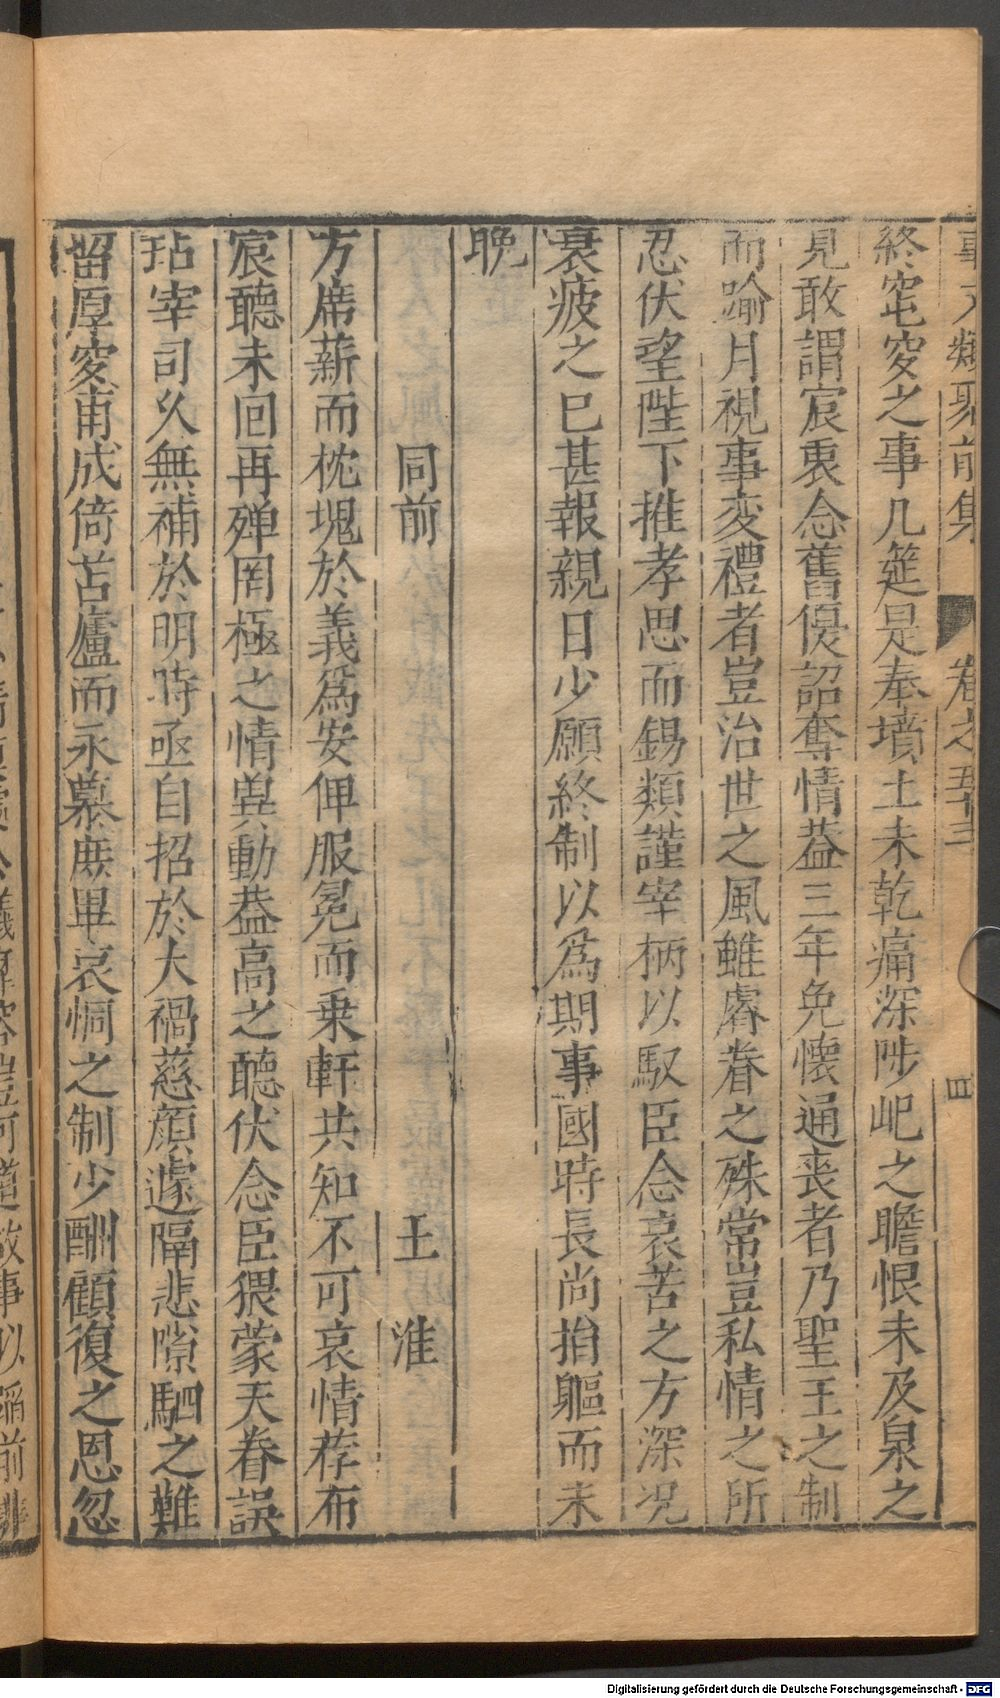 事文類聚前集 卷之五十三 四
終窀穸之事几筵是奉墳土未乾痛深陟屺之瞻恨未及泉之
見敢謂宸衷念舊優詔奪情葢三年免懷通喪者乃聖王之制
而踰月視事変禮者豈治世之風雖睿眷之殊常豈私情之所
忍伏望陛下推孝思而錫類謹宰柄以馭臣念哀苦之方深况
衰疲之已甚報親日少願終制以為期事國時長尚捐軀而未
晚
同前 王淮
方席薪而枕塊於義爲安俾服冕而乗軒共知不可哀情荐布
宸聽未回再殫罔極之情兾動葢高之聽伏念臣猥蒙天眷誤
玷宰司久無補於明時亟自招於大禍慈顔遽隔悲隙駟之難
留厚穸甫成倚苫廬而永慕庶畢哀恫之制少酬顧復之恩忽
Digitalisierung gefördert durch die Deutsche Forschungsgemeinschaft - DFG